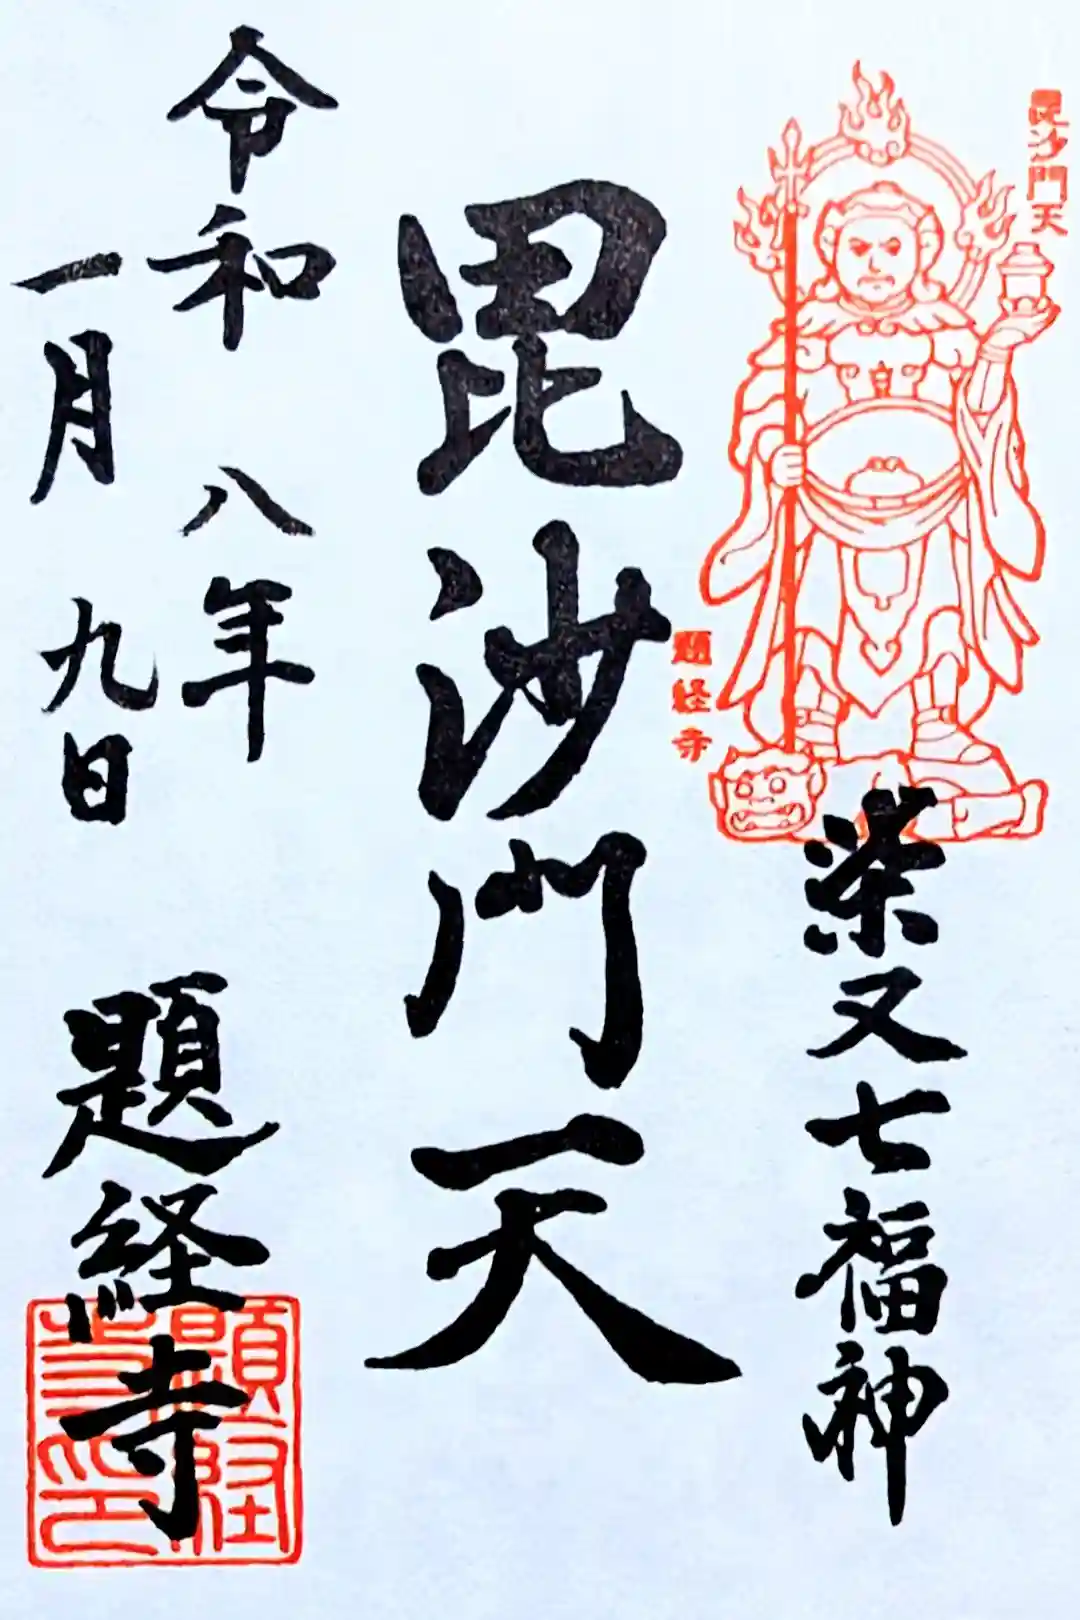 毘沙門天
柴又七福神
題経寺
毘沙門天
令和八年
一月九日
題経寺
題経寺印